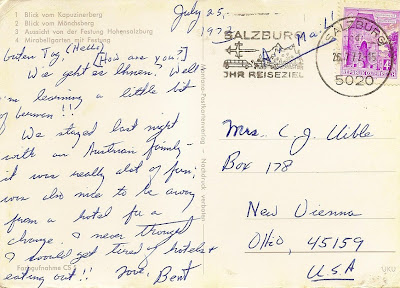 1 Blick vom Kapuzinerberg
2 Blick vom Mönchsberg
3 Aussicht von der Festung Hohensalzburg
4 Mirabellgarten mit Festung
July 25,
197
Air Mail
SALZBURG
IHR REISEZIEL
SALZBURG
5020
Guten Tag, (Hello)
[How are you?]
We geht es Ihnen? Well
I'm learning a little bit
of German!!
We stayed last night
with an Austrian family-
it was really alot of fun,
was also nice to be away
from a hotel for a
change. I never thought
I would get tired of hotels &
eating out!! Love, Bent
Farbaufnahme
Nachdruck verboten
Mrs. C J Uible
Box 178
New Vienna
Ohio, 45159
USA
UKU